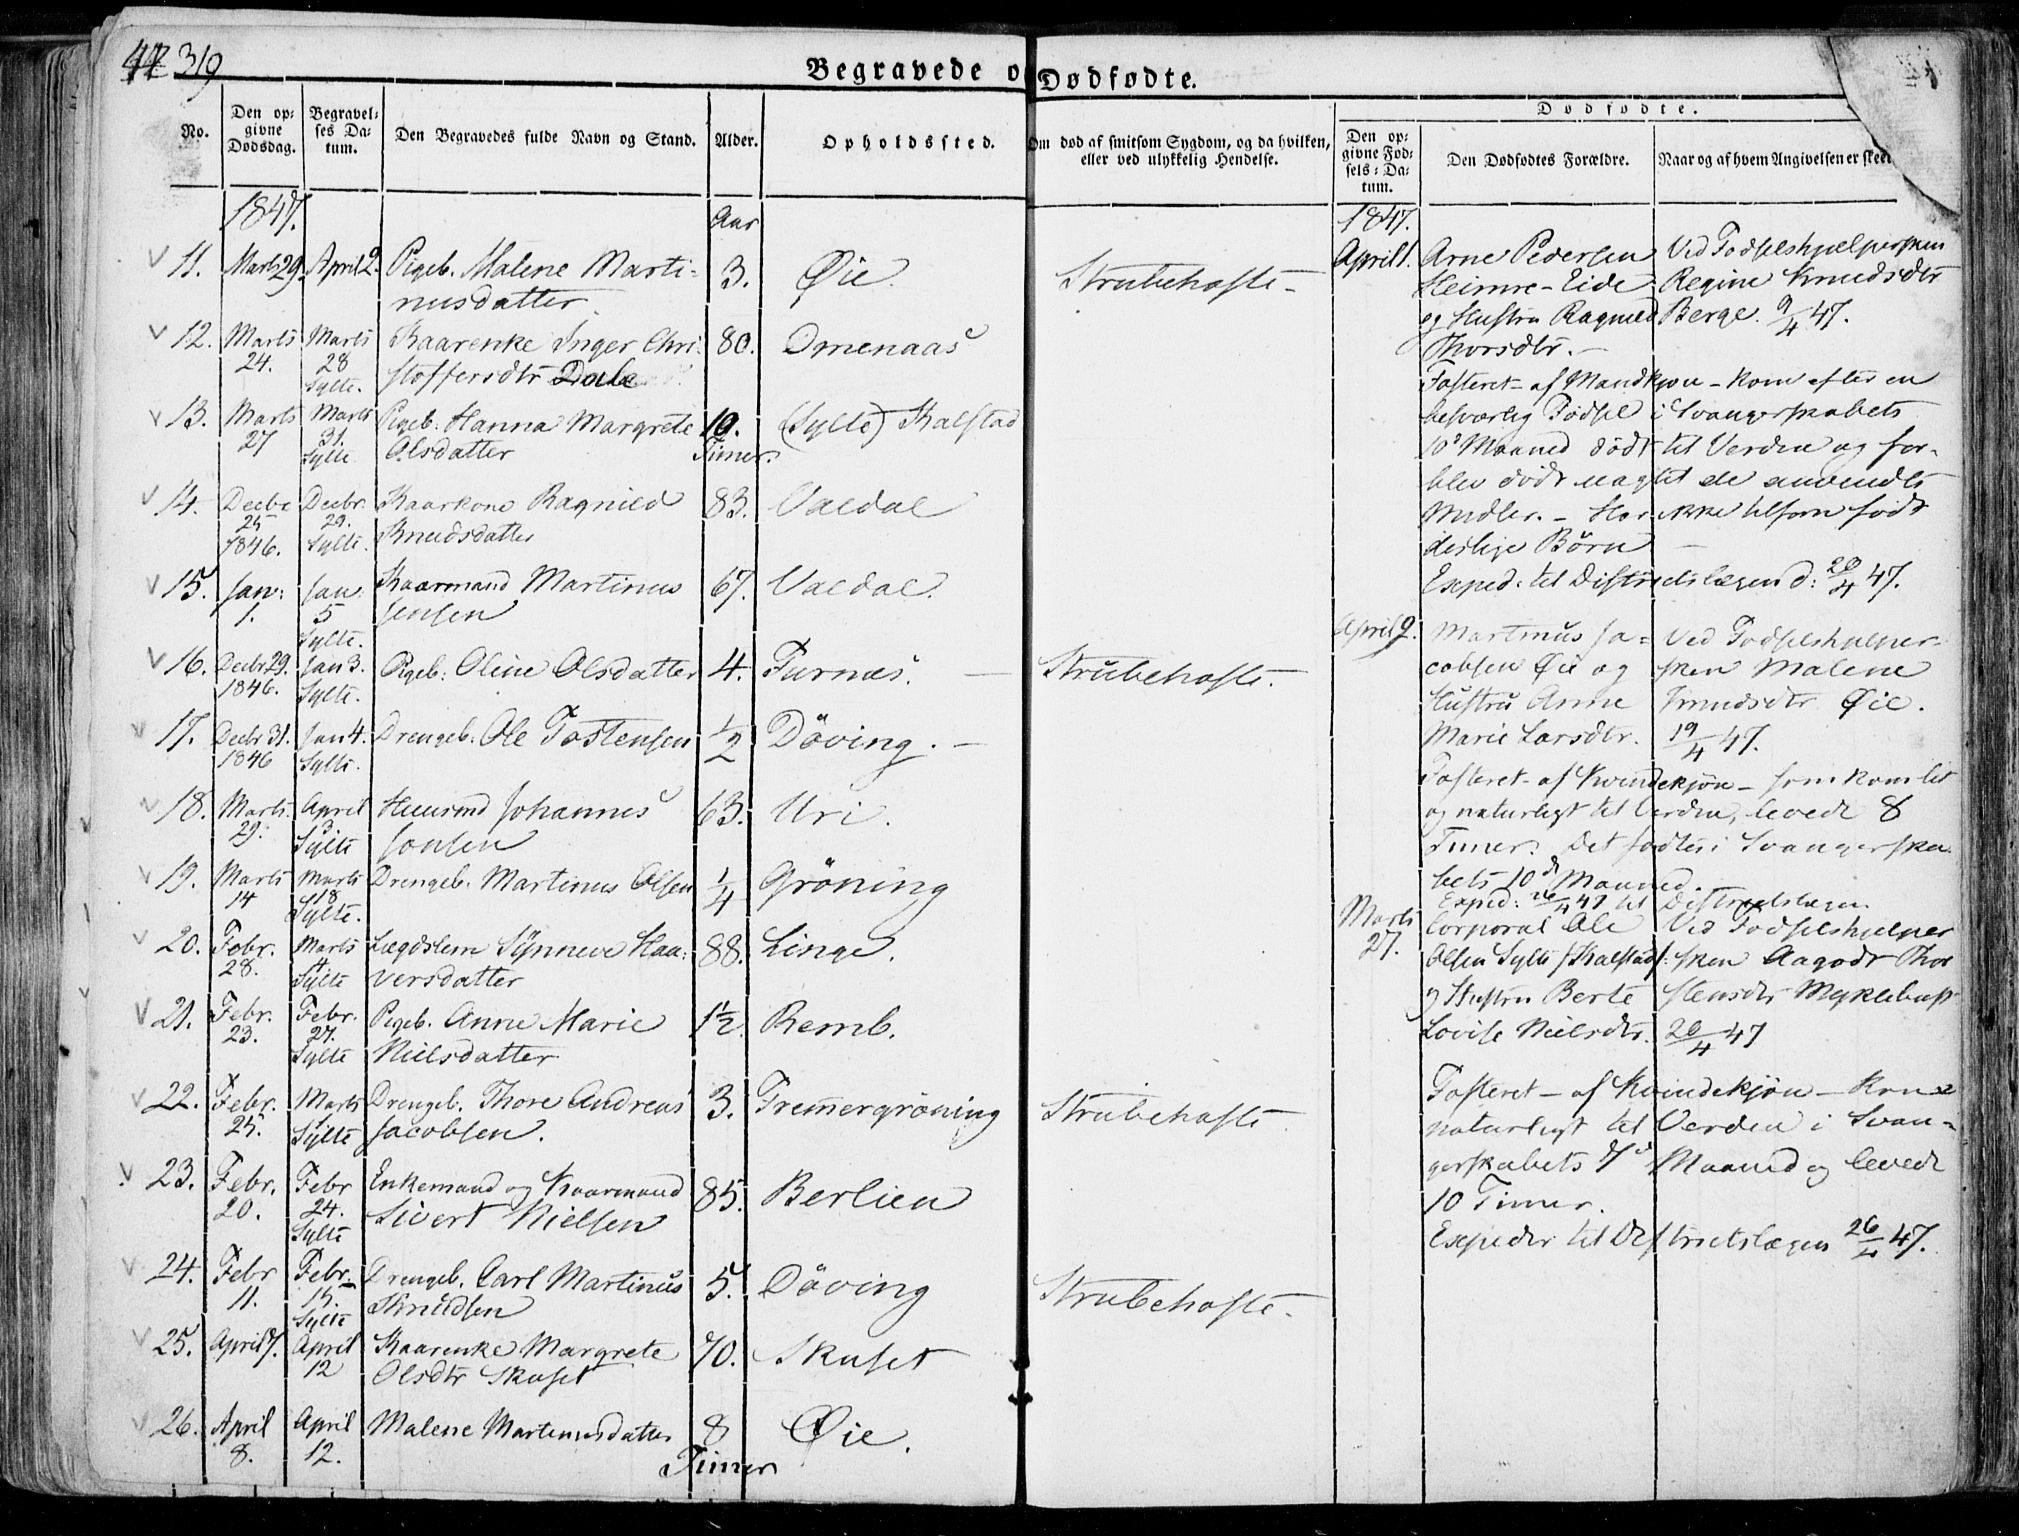 319
Begravede og Dødfødte.
No.
Den op-
givne
Dødsdag.
Begravel-
ses Da-
tum.
Den Begravedes fulde Navn og Stand.
Alder.
Opholdssted.
Om død af smitsom Sygdom, og da hvilken,
eller ved ulykkelig Hendelse.
Dødfødte.
Den op-
givne Fød-
sels-Da-
tum.
Den Dødfødtes Forældre.
Naar og af hvem Angivelsen er skeet
1847.
Aar
11. Marts 29. April 2. Pigeb. Malene Marti- 3. Øie. Strubehoste -
nusdatter
12. Marts Marts Kaarenke Inger Chri- 80. Omenaas
24. 28 stoffersdtr Dale
Sylte.
13. Marts Marts Pigeb. Hanna Margrete 10. (Sylte) Kalstad
27 31. Olsdatter Timer.
Sylte
14. Decbr Decbr. Kaarkone Ragnild 83. Valdal
25 29. Knudsdatter
1846. Sylte.
15. Jan: Jan: Kaarmand Martinus 67. Valdal.
1. 5 Jensen
Sylte.
16. Decbr 29. Jan 3. Pigeb: Oline Olsdatter 4. Furnæs. - Strubehoste.
1846. Sylte.
17. Decbr 31. Jan 4. Drengeb. Ole Tostensen 1/2 Döving. -
1846 Sylte.
18. Marts April Huusmd Johannes 63. Uri.
29. Sylte Jonsen
19. Marts Marts Drengeb. Martinus Olsen 1/4 Gröning
14 18
Sylte.
20. Febr. Marts Lægdslem Synneve Haa- 88. Linge.
28. 4 versdatter
Sylte
21. Febr. Febr. Pigeb. Anne Marie 1 1/2. Remb.
23. 27. Nielsdatter
Sylte
22. Febr. Marts Drengeb. Thore Andreas 3. Fremergröning Strubehoste
25. Sylte Jacobsen.
23. Febr. Febr Enkemand og Kaarmand 85. Berlien
20. 24. Sivert Nielsen
Sylte
24. Febr Febr. Drengeb. Carl Martinus 5. Döving Strubehoste.
11. 15. Knudsen
Sylte
25. April 7. April Kaarenke Margrete 70. Skuset
12 Olsdtr Skuset
26. April April Malene Martinusdatter 8 Øie.
8. 12. Timer
1847.
April 1. Arne Pedersen Ved Fødselshjelpersken
Heimre-Eide Regine Knudsdtr
og Hustru Ragnild Berge. 9/4 47.
Thorsdtr. -
Fosteret - af Mandkjøn - kom efter en
besværlig Fødsel i Svangerskabets
10d Maaned dødt til Verden og for-
blev dødt uagtet de anvendte
Midler. - Har ikke tilforn født
deslige Børn -
Exped. til Districtslægen d: 20/4 47.
April 9. Martinus Ja- Ved Fødselshjelper-
cobsen Øie og sken Malene
Hustru Anne Knudsdtr Øie.
Marie Larsdtr. 19/4 47.
Fosteret - af Kvindekjøn - som kom let
og naturligt til Verden, levede 8
Timer. Det fødtes i Svangerska-
bets 10d Maaned.
Exped: 26/4 47 til Districtslægen
Marts Corporal Ole Ved Fødselshjelper
27. Olsen Sylte /Kalstad/ sken Aagodt Thor
og Hustru Berte stensdtr Myklebust
Lovise Nielsdtr. 20/4 47
Fosteret - af Kvindekjøn - kom
naturligt til Verden i Svan-
gerskabets 7d Maaned og levede
10 Timer.
Expeder til Districtslægen 26/4 47.